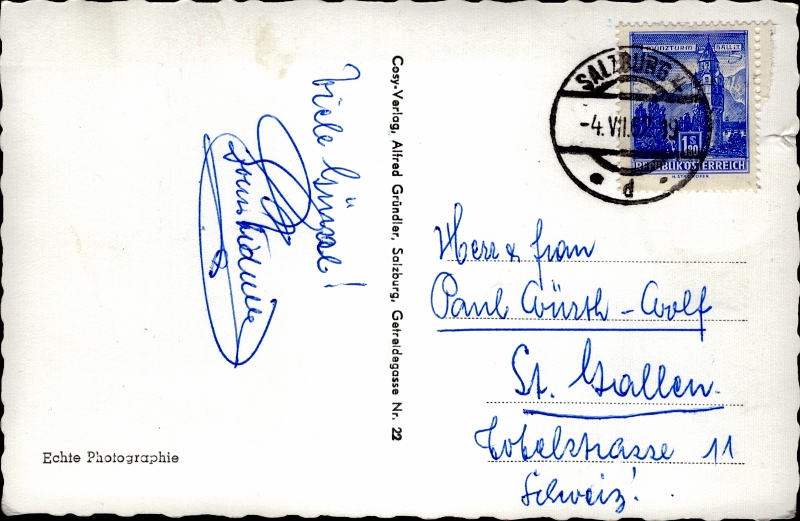 Viele Grüsse!
Cosy-Verlag, Alfred Gründler, Salzburg, Getreidegasse Nr. 22
Echte Photographie
SALZBURG
-4.VII.6
d
MÜNZTURM HALL I.T.
1S
REPUBLIK ÖSTERREICH
Herr & Frau
Paul Würth-Wolf
St. Gallen
Tobelstrasse 11
Schweiz!